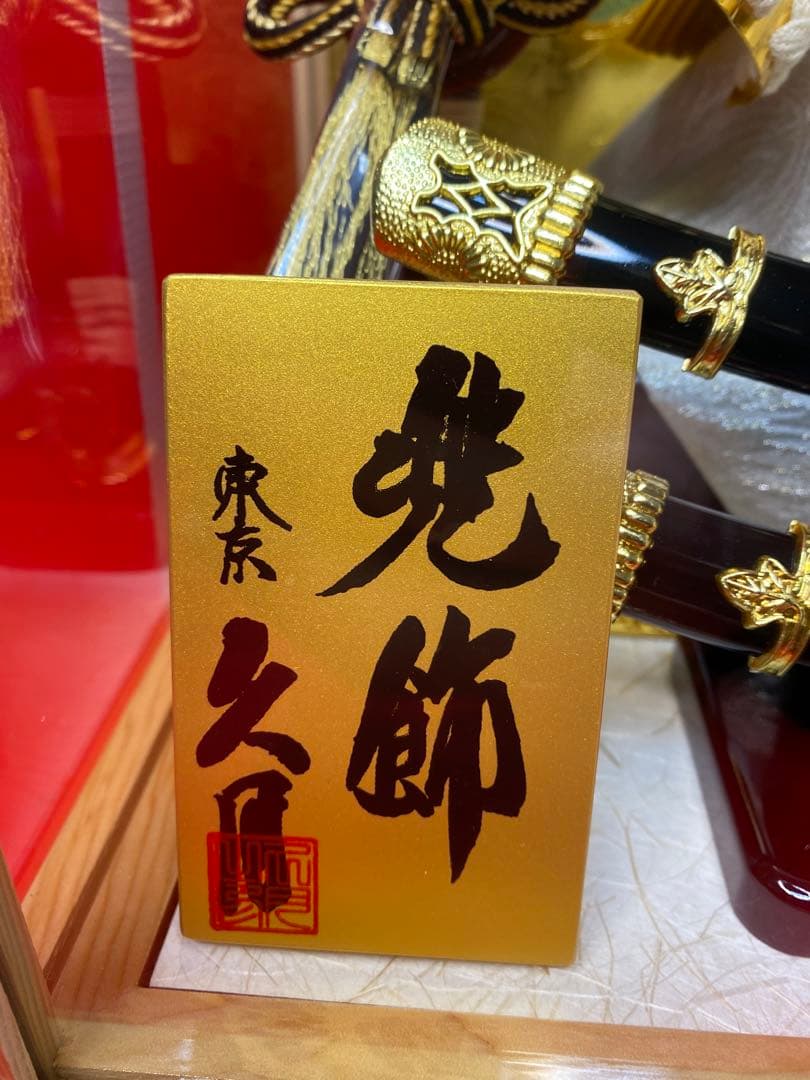 兜飾
東京 久月